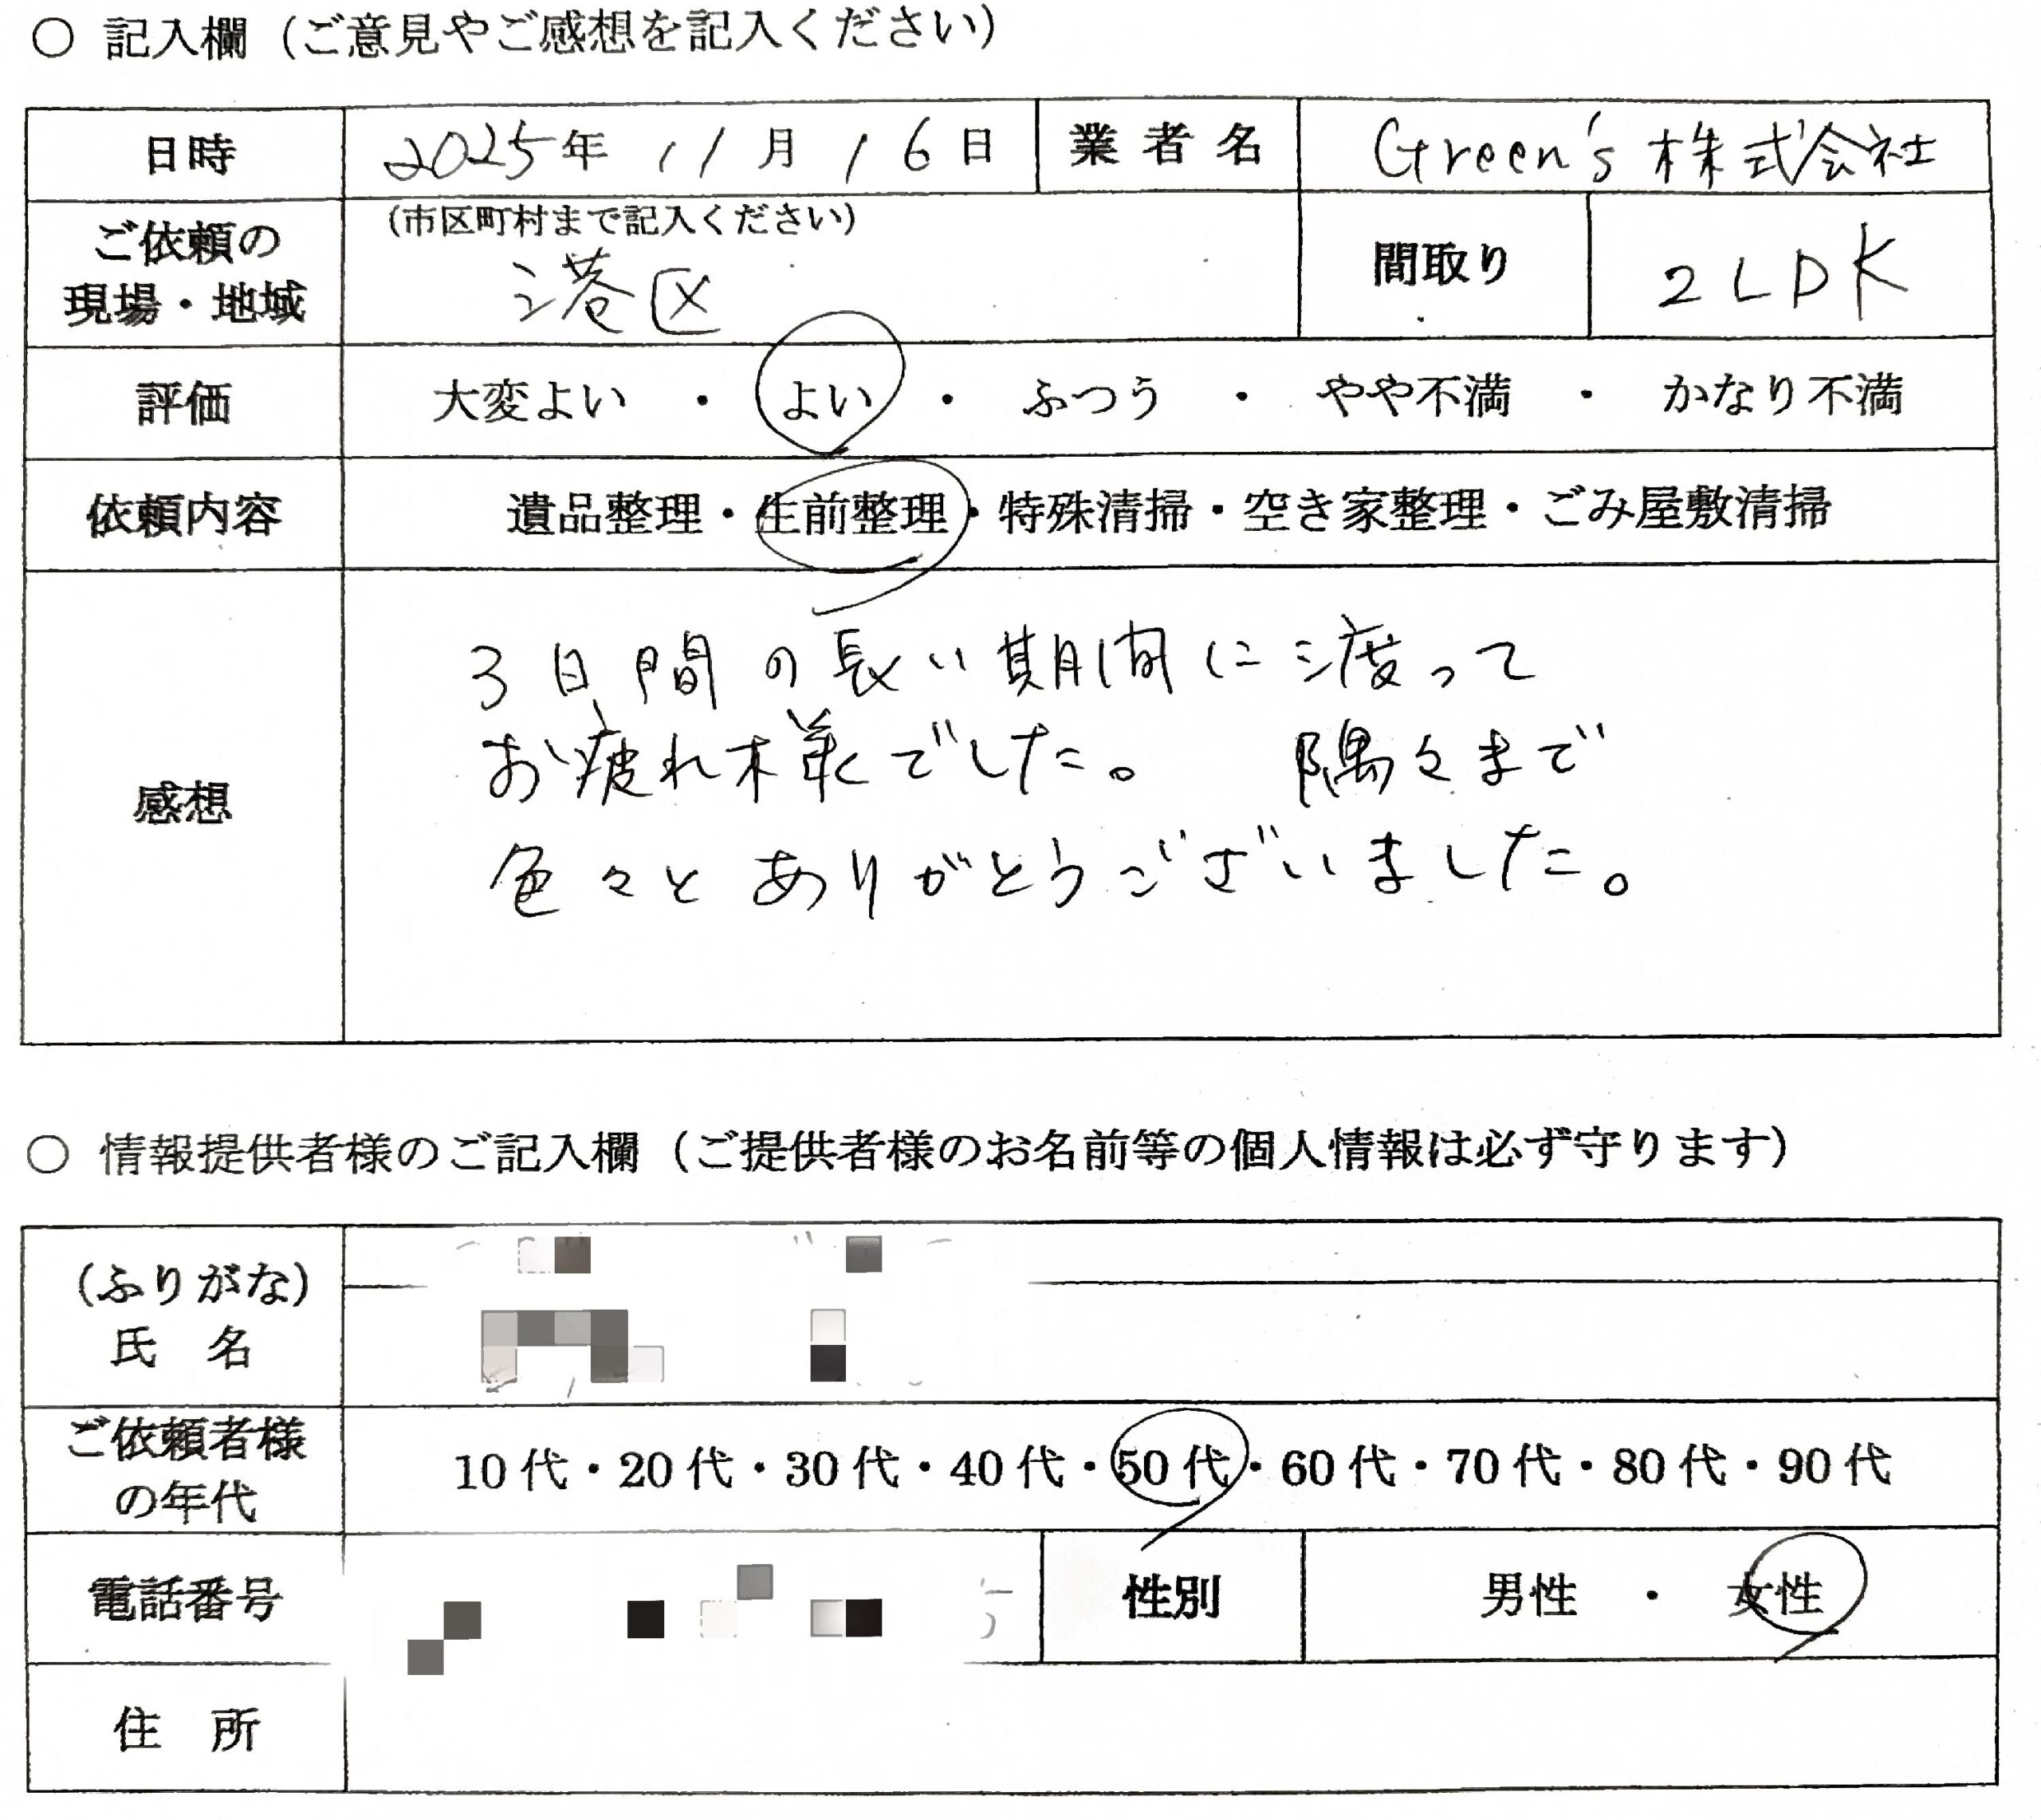 ○ 記入欄（ご意見やご感想を記入ください）
日時 2025年 11月 16日 業者名 Green's 株式会社
ご依頼の現場・地域 （市区町村まで記入ください）
港区 間取り 2LDK
評価 大変よい ・ よい ・ ふつう ・ やや不満 ・ かなり不満
依頼内容 遺品整理・生前整理・特殊清掃・空き家整理・ごみ屋敷清掃
感想
3日間の長い期間に渡って
お疲れ様でした。 隅々まで
色々とありがとうございました。
○ 情報提供者様のご記入欄（ご提供者様のお名前等の個人情報は必ず守ります）
（ふりがな）
氏 名
ご依頼者様の年代 10代・20代・30代・40代・50代・60代・70代・80代・90代
電話番号 性別 男性 ・ 女性
住 所